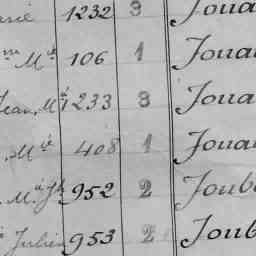 1232 3 Joua
M^e 106 1 Joua
Jean, M^e 1233 3 Joua
M^ie 408 1 Joua
M.^e J^h 952 2 Joub
Julien 953 2 Joub